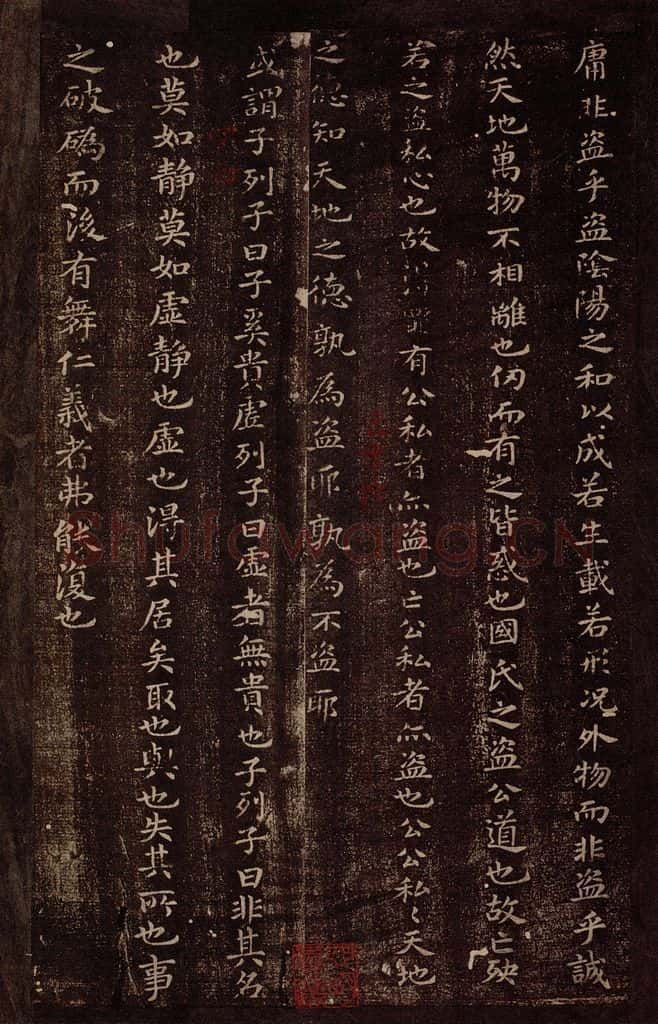 庸非盗乎盗陰陽之和以成若生載若形况外物而非盗乎誠
然天地萬物不相離也仞而有之皆惑也國氏之盗公道也故亡殃
若之盗私心也故得罪有公私者亦盗也亡公私者亦盗也公公私〻天地
之德知天地之德孰為盗耶孰為不盗耶
或謂子列子曰子奚貴虛列子曰虛者無貴也子列子曰非其名
也莫如靜莫如虛靜也虛也淂其居矣取也與也失其所也事
之破䃣而後有舞仁義者弗能復也
Shufawang.CN